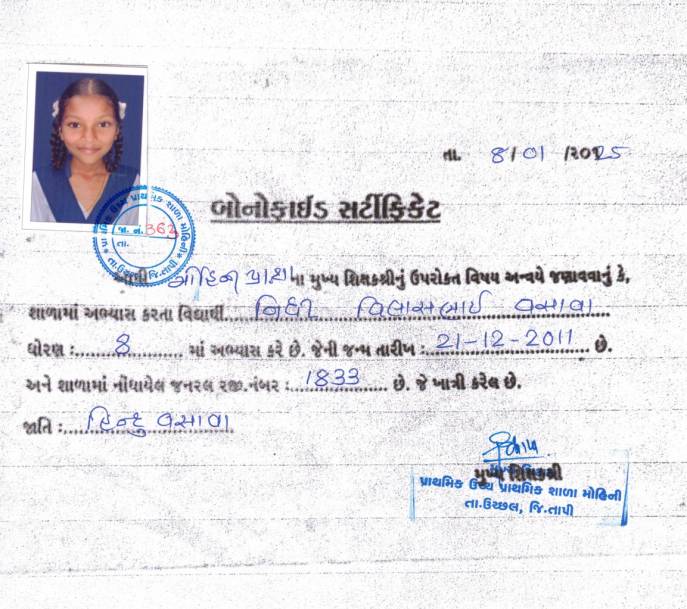 તા. 8/01/2025
બોનોફાઈડ સર્ટીફિકેટ
પ્રાથમિક ઉચ્ચ પ્રાથમિક શાળા મોહિની
જા. નં. 363
તા.
તા.ઉચ્છલ જિ.તાપી
આથી મોહિની પ્રા.શા ના મુખ્ય શિક્ષકશ્રીનું ઉપરોકત વિષય અન્વયે જણાવવાનું કે,
શાળામાં અભ્યાસ કરતા વિદ્યાર્થી નિધી વિલાસભાઈ વસાવા
ધોરણ : 8 માં અભ્યાસ કરે છે. જેની જન્મ તારીખ : 21-12-2011 છે.
અને શાળામાં નોંધાયેલ જનરલ રજી.નંબર : 1833 છે. જે ખાત્રી કરેલ છે.
જાતિ : હિન્દુ વસાવા
મુખ્ય શિક્ષકશ્રી
પ્રાથમિક ઉચ્ચ પ્રાથમિક શાળા મોહિની
તા.ઉચ્છલ, જિ.તાપી